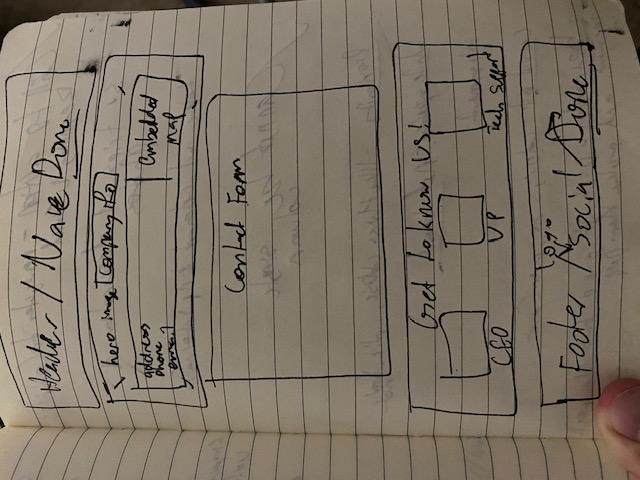 Header / Nave Done
hero image Company
address
phone
email
Embedded
Map
Contact Form
Get to know us!
CEO
VP
Tech Support
Footer / Social Done